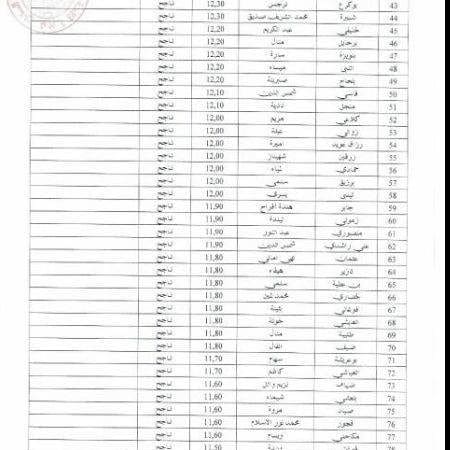 43 بوكرع نرجس 12,30 ناجح
44 شبيرة محمد الشريف صديق 12,30 ناجح
45 خليفي عبد الكريم 12,20 ناجح
46 برحايل منال 12,20 ناجح
47 سارة 12,20 ناجح
48 ميساء 12,20 ناجح
49 صبرينة 12,20 ناجح
50 قاسي شمس الدين 12,10 ناجح
51 منجل نادية 12,10 ناجح
52 كلاعي مريم 12,00 ناجح
53 زواي عبلة 12,00 ناجح
54 أميرة 12,00 ناجح
55 زرقين شهيناز 12,00 ناجح
56 حمادي لمياء 12,00 ناجح
57 برزيق سلمى 12,00 ناجح
58 يسرى 12,00 ناجح
59 جابر هندة أفراح 11,90 ناجح
60 زمولي ليندة 11,90 ناجح
61 منصوري عبد النور 11,90 ناجح
62 علي راشدي شمس الدين 11,90 ناجح
63 عثمان 11,80 ناجح
64 هيفاء 11,80 ناجح
65 بن عطية سلمى 11,80 ناجح
66 خضاري محمد لمين 11,80 ناجح
67 بثينة 11,80 ناجح
68 خولة 11,80 ناجح
69 طيبة منال 11,80 ناجح
70 ضيف 11,80 ناجح
71 بوعريشة سهام 11,70 ناجح
72 العياشي كاظم 11,70 ناجح
73 11,60 ناجح
74 شيماء 11,60 ناجح
75 صياد مروة 11,60 ناجح
76 قجور محمد نور الاسلام 11,60 ناجح
77 مكاحلي ويسام 11,60 ناجح
78 11,50 ناجح